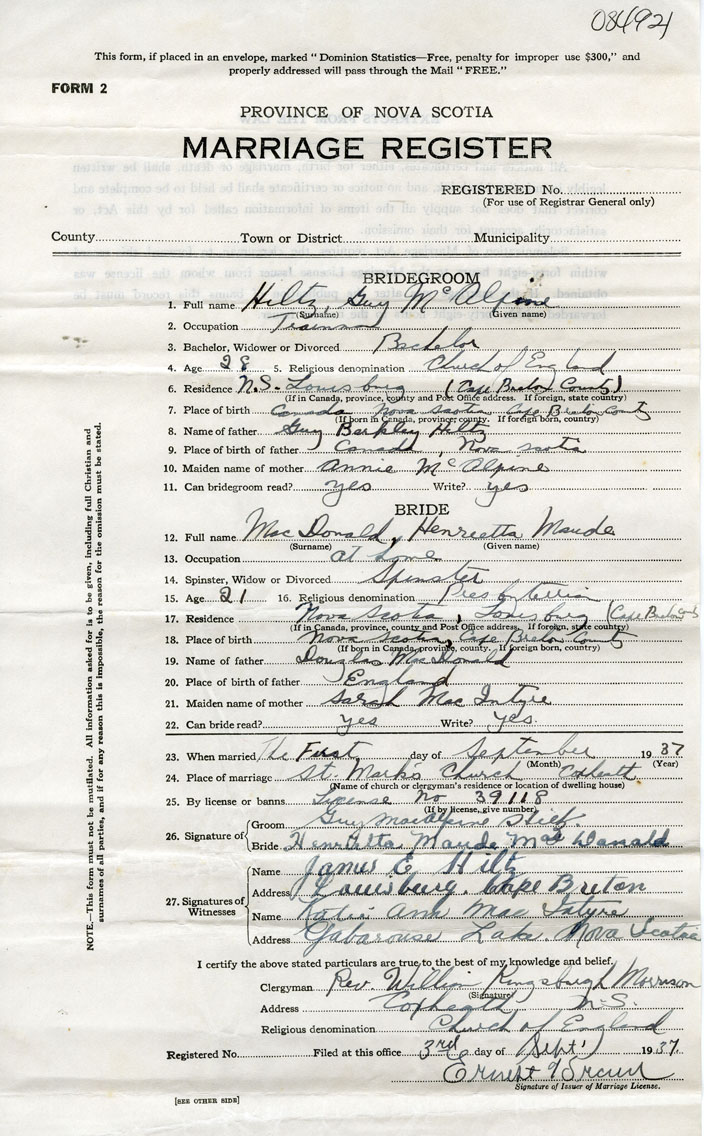 08492
This form, if placed in an envelope, marked "Dominion Statistics—Free, penalty for improper use $300," and
properly addressed will pass through the Mail "FREE."
FORM 2
PROVINCE OF NOVA SCOTIA
MARRIAGE REGISTER
REGISTERED No.
(For use of Registrar General only)
County Town or District Municipality
BRIDEGROOM
1. Full name Hiltz, Guy McAlpine
(Surname) (Given name)
2. Occupation Trainman
3. Bachelor, Widower or Divorced Bachelor
4. Age 28 5. Religious denomination Church of England
6. Residence N.S. Louisburg (Cape Breton County)
(If in Canada, province, county and Post Office address. If foreign, state country)
7. Place of birth Canada Nova Scotia Cape Breton County
(If born in Canada, province, county. If foreign born, country)
8. Name of father Guy Berkley Hiltz
9. Place of birth of father Canada, Nova Scotia
10. Maiden name of mother Annie McAlpine
11. Can bridegroom read? yes Write? yes
BRIDE
12. Full name MacDonald, Henrietta Maude
(Surname) (Given name)
13. Occupation at home
14. Spinster, Widow or Divorced Spinster
15. Age 21 16. Religious denomination Presbyterian
17. Residence Nova Scotia, Louisburg (Cape Breton
(If in Canada, province, county and Post Office address. If foreign, state country)
18. Place of birth Nova Scotia, Cape Breton County
(If born in Canada, province, county. If foreign born, country)
19. Name of father Douglas MacDonald
20. Place of birth of father England
21. Maiden name of mother Sarah MacIntyre
22. Can bride read? yes Write? yes.
23. When married The First day of September 1937
(Month) (Year)
24. Place of marriage St. Mark's Church Coxheath
(Name of church or clergyman's residence or location of dwelling house)
25. By license or banns License No 39118
(If by license, give number)
26. Signature of Groom Guy MacAlpine
Bride Henrietta Maude MacDonald
27. Signatures of Witnesses
Name James E Hiltz
Address Louisburg, Cape Breton
Name Katie Ann MacIntyre
Address Gabarouse Lake Nova Scotia
I certify the above stated particulars are true to the best of my knowledge and belief.
Clergyman Rev. William Kingsburgh Morrison
(Signature)
Address Coxheath N.S.
Religious denomination Church of England
Registered No. Filed at this office 3rd day of Sept 1937.
Ernest
Signature of Issuer of Marriage License.
[SEE OTHER SIDE]
NOTE.—This form must not be mutilated. All information asked for is to be given, including full Christian and
surnames of all parties, and if for any reason this is impossible, the reason for the omission must be stated.